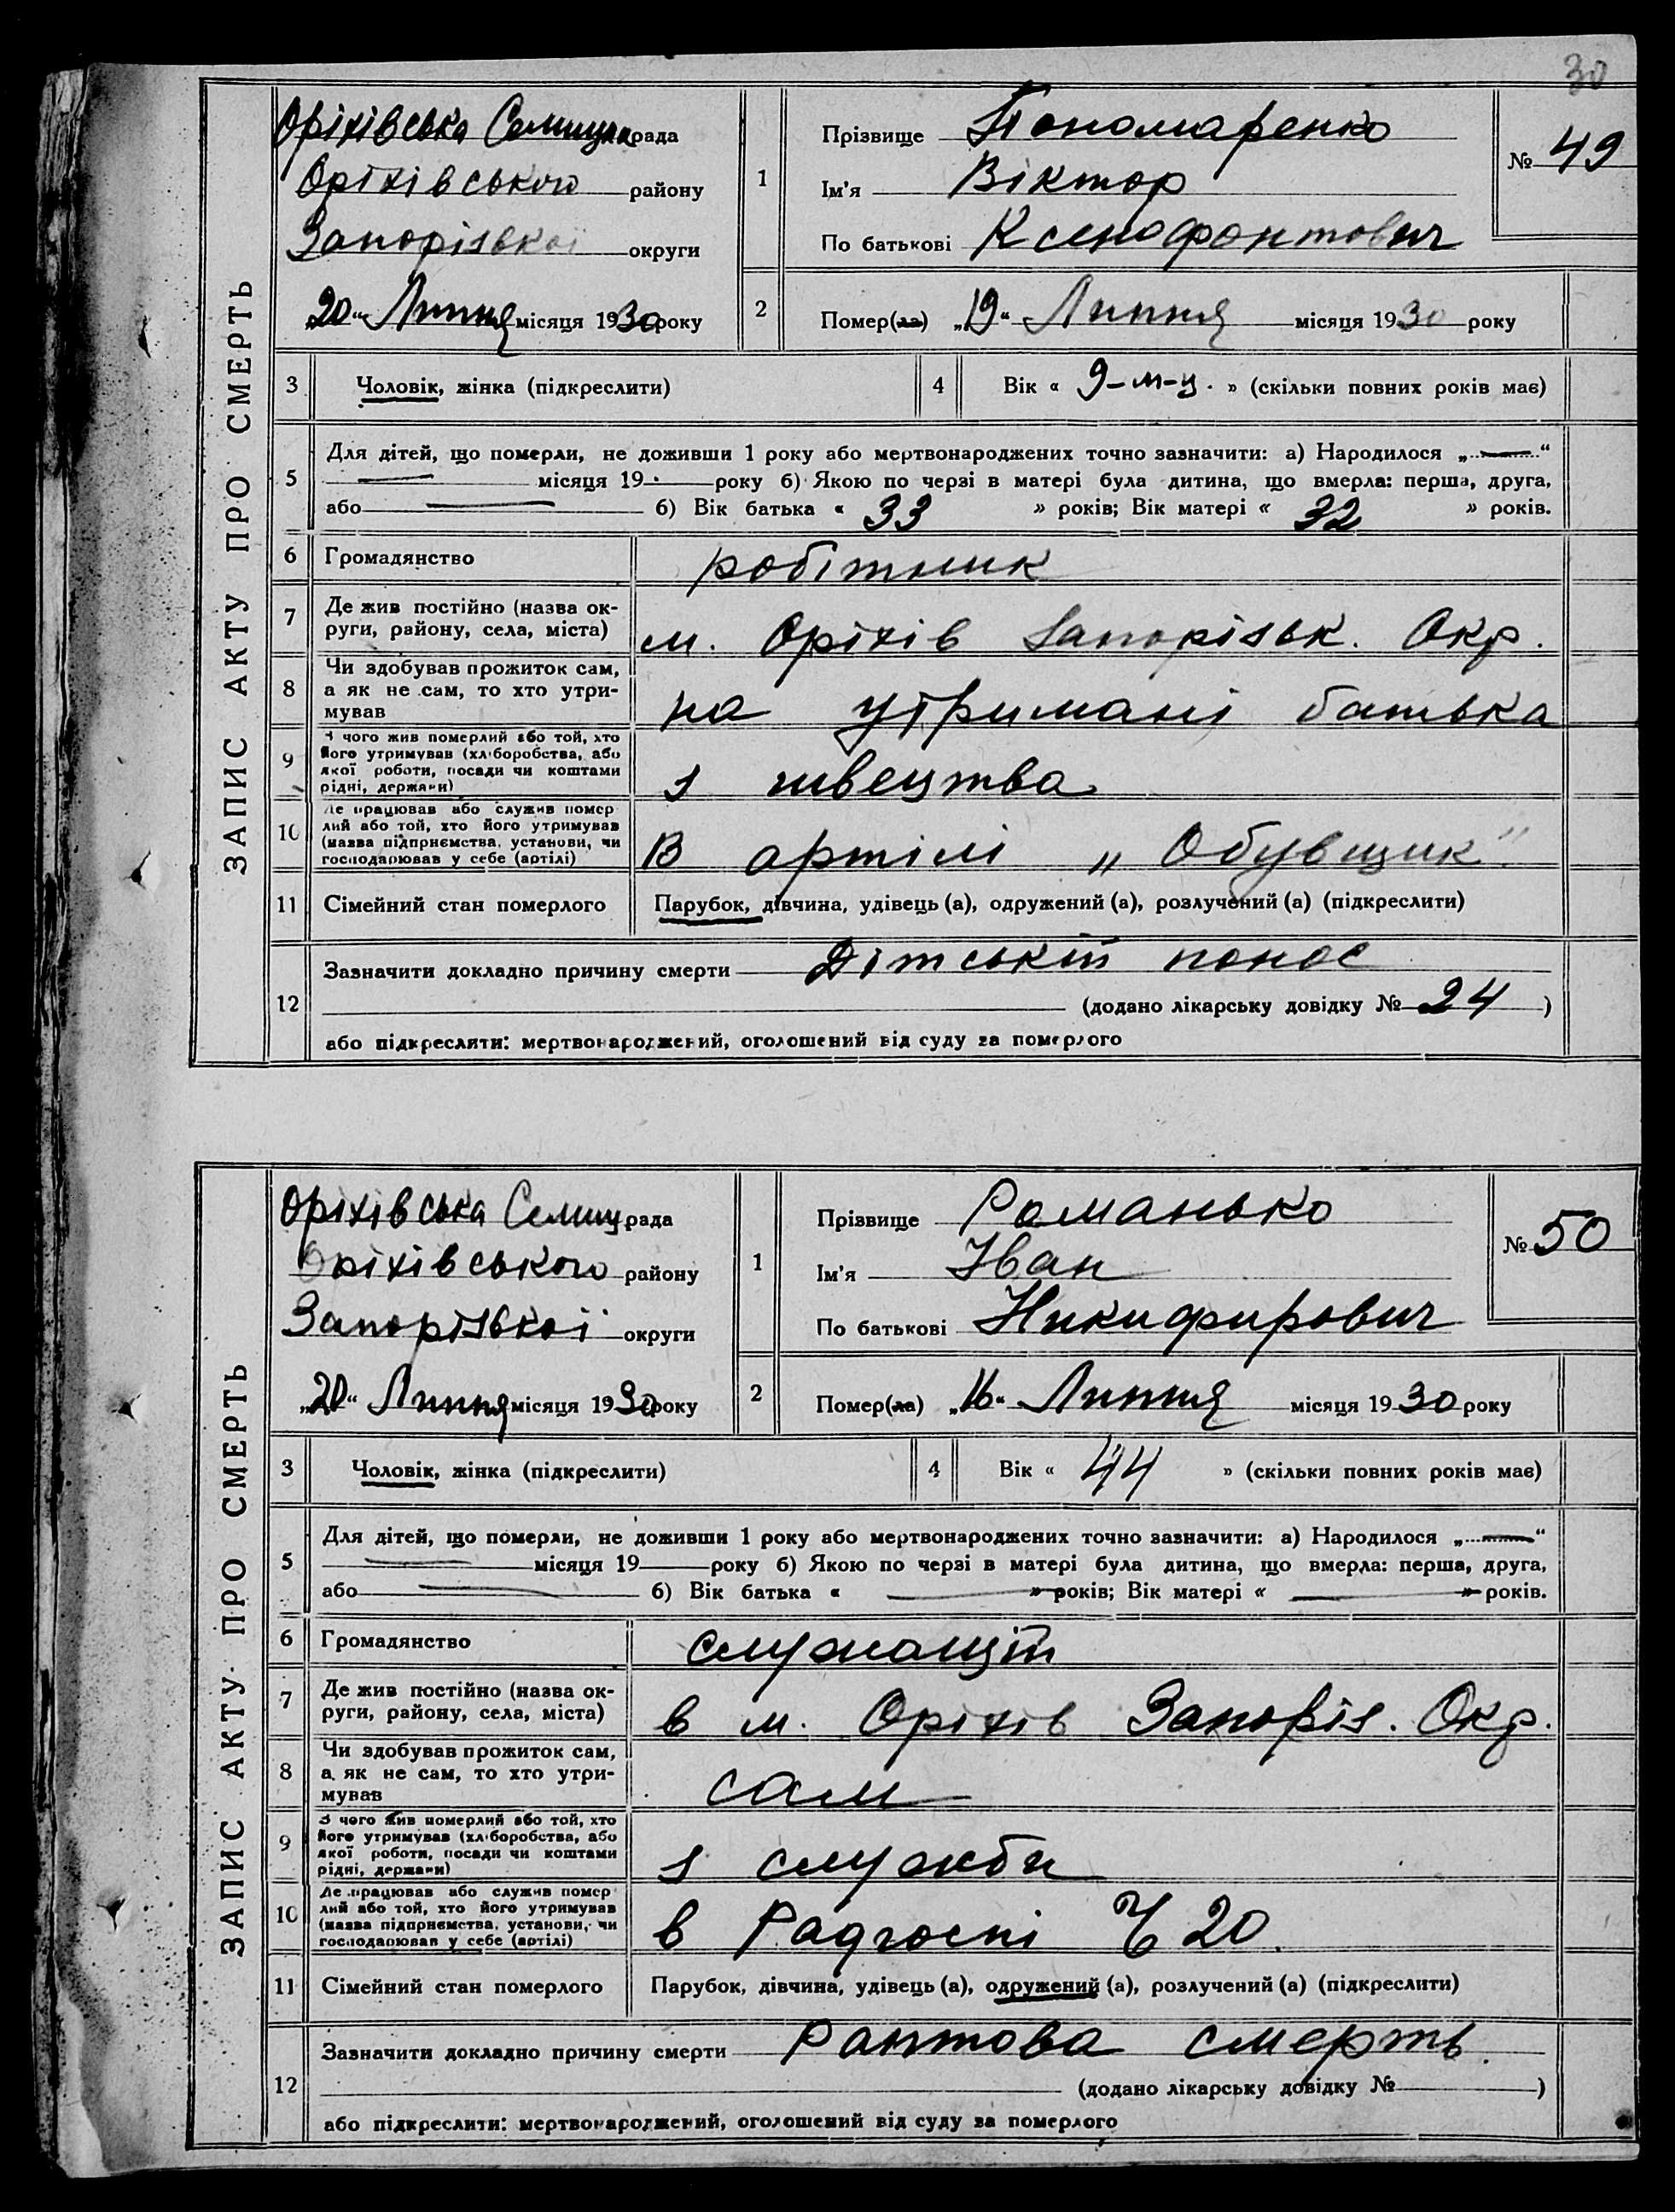 30
ЗАПИС АКТУ ПРО СМЕРТЬ
Оріхівська Селищна рада
Оріхівського району
Запорізької округи
„20“ Липня місяця 1930 року
1
Прізвище Пономаренко
Ім'я Віктор
По батькові Ксенофонтович
№ 49
2
Помер(ла) „19“ Липня місяця 1930 року
3 Чоловік, жінка (підкреслити)
4 Вік « 9-м-ц. » (скільки повних років має)
5
Для дітей, що померли, не доживши 1 року або мертвонароджених точно зазначити: а) Народилося „—“
— місяця 19 року б) Якою по черзі в матері була дитина, що вмерла: перша, друга,
або — б) Вік батька « 33 » років; Вік матері « 32 » років.
6 Громадянство робітник
7 Де жив постійно (назва ок-
руги, району, села, міста) м. Оріхів Запорізьк. Окр.
8 Чи здобував прожиток сам,
а як не сам, то хто утри-
мував на утримані батька
9 З чого жив померлий або той, хто
його утримував (хліборобства, або
якої роботи, посади чи коштами
рідні, держави) з швецтва
10 Де працював або служив помер
лий або той, хто його утримував
(назва підприємства, установи, чи
господарював у себе (артілі) В артілі „Обувщик"
11 Сімейний стан померлого Парубок, дівчина, удівець (а), одружений (а), розлучений (а) (підкреслити)
12
Зазначити докладно причину смерти Дітській понос
(додано лікарську довідку № 24 )
або підкреслити: мертвонароджений, оголошений від суду за померлого
ЗАПИС АКТУ ПРО СМЕРТЬ
Оріхівська Селищ рада
Оріхівського району
Запорізької округи
„20“ Липня місяця 1930 року
1
Прізвище Романько
Ім'я Іван
По батькові Никифирович
№ 50
2
Помер(ла) „16“ Липня місяця 1930 року
3 Чоловік, жінка (підкреслити)
4 Вік « 44 » (скільки повних років має)
5
Для дітей, що померли, не доживши 1 року або мертвонароджених точно зазначити: а) Народилося „—“
— місяця 19 року б) Якою по черзі в матері була дитина, що вмерла: перша, друга,
або — б) Вік батька « — » років; Вік матері « — » років.
6 Громадянство служащій
7 Де жив постійно (назва ок-
руги, району, села, міста) в м. Оріхів Запоріз. Окр.
8 Чи здобував прожиток сам,
а як не сам, то хто утри-
мував сам
9 З чого жив померлий або той, хто
його утримував (хліборобства, або
якої роботи, посади чи коштами
рідні, держави) з служби
10 Де працював або служив помер
лий або той, хто його утримував
(назва підприємства, установи, чи
господарював у себе (артілі) в Радгоспі Ч 20.
11 Сімейний стан померлого Парубок, дівчина, удівець (а), одружений (а), розлучений (а) (підкреслити)
12
Зазначити докладно причину смерти Раптова смерть.
(додано лікарську довідку № )
або підкреслити: мертвонароджений, оголошений від суду за померлого